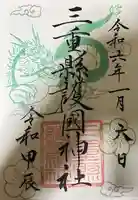 令和六年一月六日
三重縣護國神社
令和甲辰